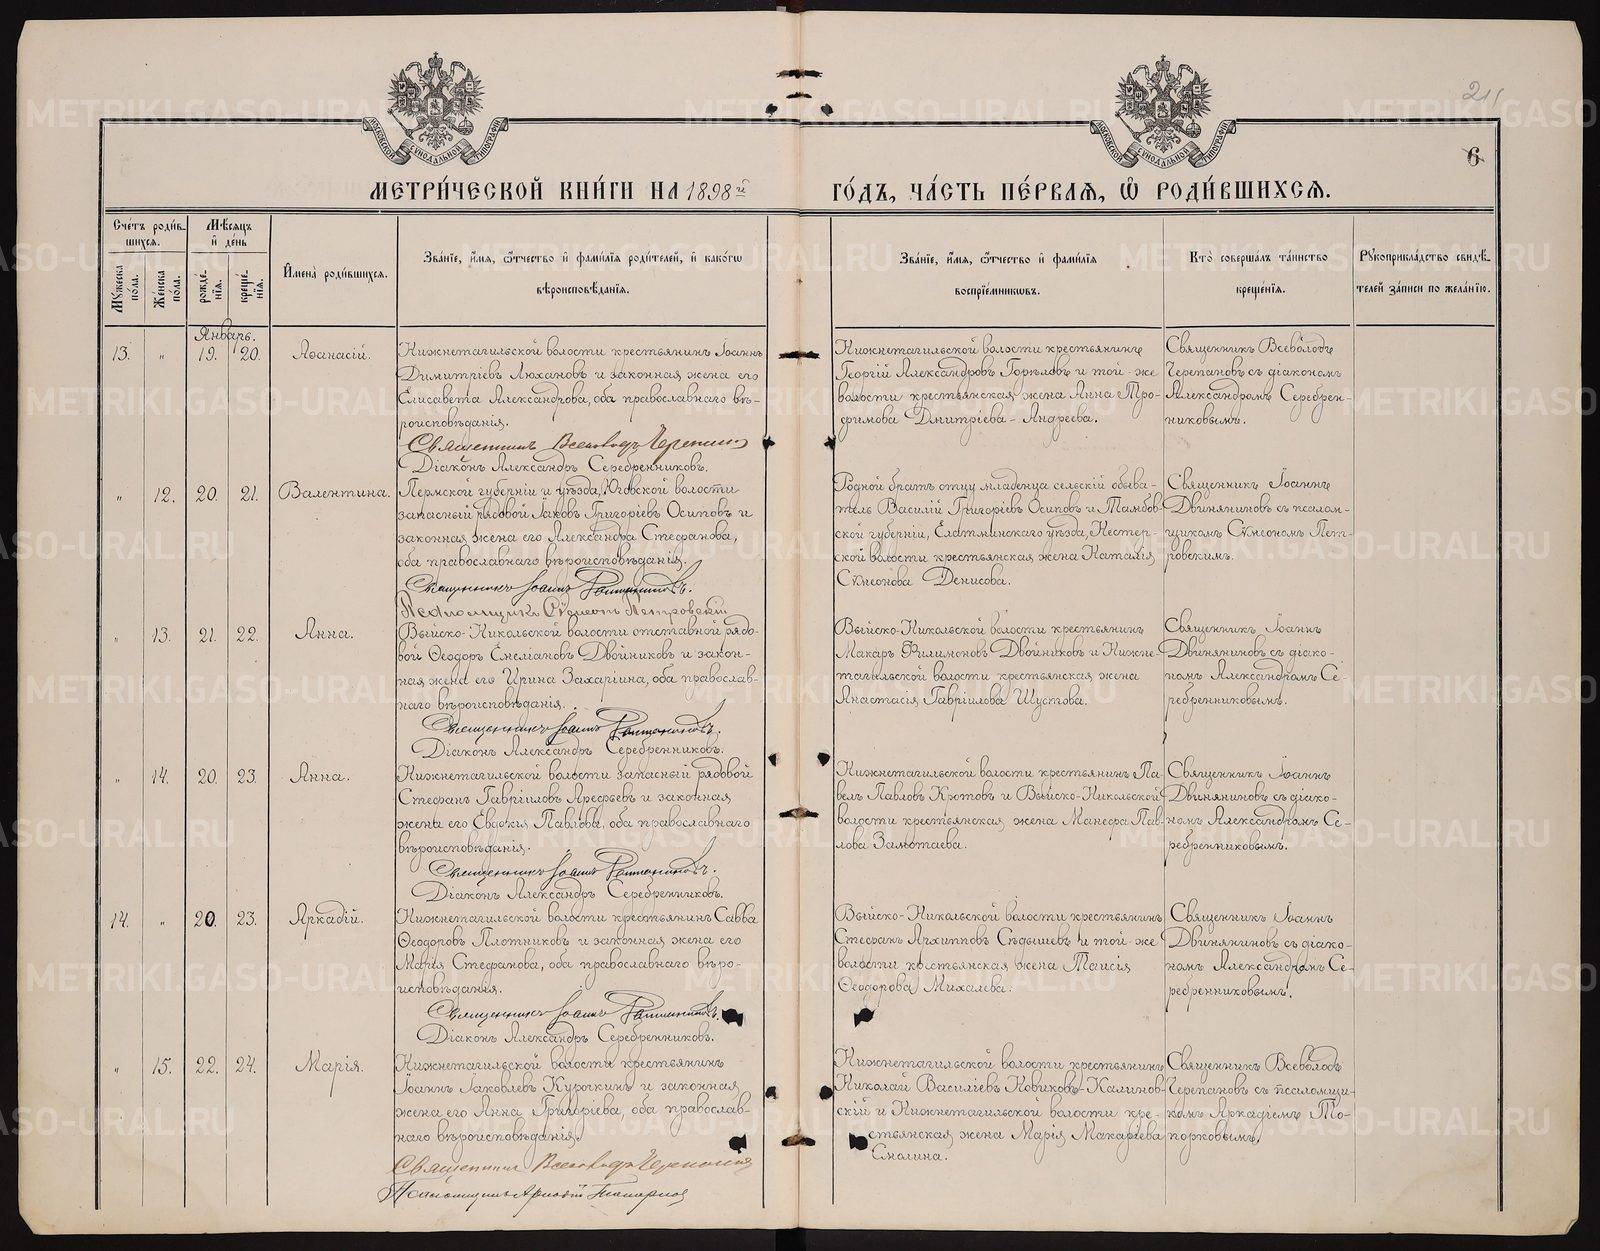 МЕТРИ́ЧЕСКОЙ КНИ́ГИ НА 1898й ГО́ДЪ, ЧА́СТЬ ПЕ́РВАѦ, Ѡ РОДИ́ВШИХСѦ.
6
Сче́тъ роди́вшихсѧ.
Мꙋ́жеска по́ла.
Же́нска по́ла.
Мѣ́сѧцъ и де́нь
рожде́нїѧ.
креще́нїѧ.
Имена̀ роди́вшихсѧ.
Зва́нїе, и́мѧ, ѻ́тчество и фами́лїѧ роди́телей, и како́гѡ
вѣроисповѣ́данїѧ.
Зва́нїе, и́мѧ, ѻ́тчество и фами́лїѧ
воспрїе́мникѡвъ.
Кто̀ соверша́лъ та́инство
креще́нїѧ.
Рꙋкоприкла́дство свидѣ́-
телей за́писи по жела́нїю.
Январь.
13. „ 19. 20. Аѳанасій.
Нижнетагильской волости крестьянинъ Іоаннъ
Димитріевъ Ляхановъ и законная жена его
Елисавета Александрова, оба православнаго вѣ-
роисповѣданія.
Священникъ Всеволодъ Черепановъ
Діаконъ Александръ Серебренниковъ.
Нижнетагильской волости крестьянинъ
Георгій Александровъ Горѣловъ и той-же
волости крестьянская жена Анна Тро-
фимова Дмитріева-Андреева.
Священникъ Всеволодъ
Черепановъ съ діакономъ
Александромъ Серебрен-
никовымъ.
„ 12. 20. 21. Валентина.
Пермской губерніи и уѣзда, Юговской волости
запасный рядовой Іаковъ Григоріевъ Осиповъ и
законная жена его Александра Стефанова,
оба православнаго вѣроисповѣданія.
Священникъ Іоаннъ Двиняниновъ.
Псаломщикъ Сѵмеонъ Петровскій
Родной братъ отцу младенца сельскій обыва-
тель Василій Григоріевъ Осиповъ и Тамбов-
ской губерніи, Елатминскаго уѣзда, Нестер-
ской волости крестьянская жена Наталія
Сѵмеонова Денисова.
Священникъ Іоаннъ
Двиняниновъ съ псалом-
щикомъ Сѵмеономъ Пет-
ровскимъ.
„ 13. 21. 22. Анна.
Выйско-Никольской волости отставной рядо-
вой Ѳеодоръ Емеліановъ Двойниковъ и закон-
ная жена его Ирина Захаріина, оба православ-
наго вѣроисповѣданія.
Священникъ Іоаннъ Двиняниновъ.
Діаконъ Александръ Серебренниковъ.
Выйско-Никольской волости крестьянинъ
Макаръ Филимоновъ Двойниковъ и Нижне-
тагильской волости крестьянская жена
Анастасія Гавріилова Шустова.
Священникъ Іоаннъ
Двиняниновъ съ діако-
номъ Александромъ Се-
ребренниковымъ.
„ 14. 20. 23. Анна.
Нижнетагильской волости запасный рядовой
Стефанъ Гавріиловъ Арефьевъ и законная
жена его Евдокія Павлова, оба православнаго
вѣроисповѣданія.
Священникъ Іоаннъ Двиняниновъ.
Діаконъ Александръ Серебренниковъ.
Нижнетагильской волости крестьянинъ Па-
велъ Павловъ Кротовъ и Выйско-Никольской
волости крестьянская жена Манефа Пав-
лова Замотаева.
Священникъ Іоаннъ
Двиняниновъ съ діако-
номъ Александромъ Се-
ребренниковымъ.
14. „ 20. 23. Аркадій.
Нижнетагильской волости крестьянинъ Савва
Ѳеодоровъ Плотниковъ и законная жена его
Марія Стефанова, оба православнаго вѣро-
исповѣданія.
Священникъ Іоаннъ Двиняниновъ.
Діаконъ Александръ Серебренниковъ.
Выйско-Никольской волости крестьянинъ
Стефанъ Архипповъ Сѣдышевъ и той-же
волости крестьянская жена Таисія
Ѳеодорова Михалева.
Священникъ Іоаннъ
Двиняниновъ съ діако-
номъ Александромъ Се-
ребренниковымъ.
„ 15. 22. 24. Марія.
Нижнетагильской волости крестьянинъ
Іоаннъ Іаковлевъ Курокинъ и законная
жена его Анна Григоріева, оба православ-
наго вѣроисповѣданія.
Священникъ Всеволодъ Черепановъ
Псаломщикъ Аркадій Топорковъ
Нижнетагильской волости крестьянинъ
Николай Василіевъ Новиковъ-Калинов-
скій и Нижнетагильской волости кре-
стьянская жена Марія Макаріева
Смолина.
Священникъ Всеволодъ
Черепановъ съ псаломщи-
комъ Аркадіемъ То-
порковымъ.
METRIKI.GASO-URAL.RU